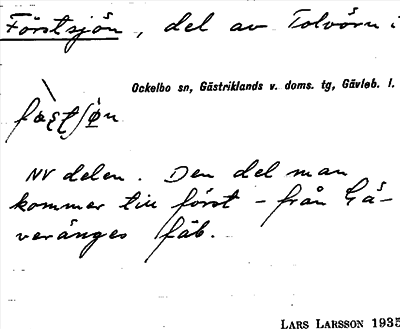 Förstsjön, del av Tolvörn i
Ockelbo sn, Gästriklands v. doms. tg, Gävleb. l.
NV delen. Den del man
kommer till först – från Gä-
veränges fäb.
LARS LARSSON 1935